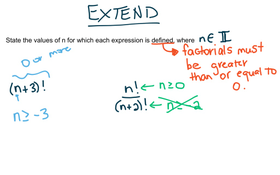 EXTEND
State the values of n for which each expression is defined, where n ∈ II
0 or more
factorials must
be greater
than or equal to
0.
(n+3)!
n ≥ -3
n! ← n ≥ 0
(n+2)! ← n ≥ -2